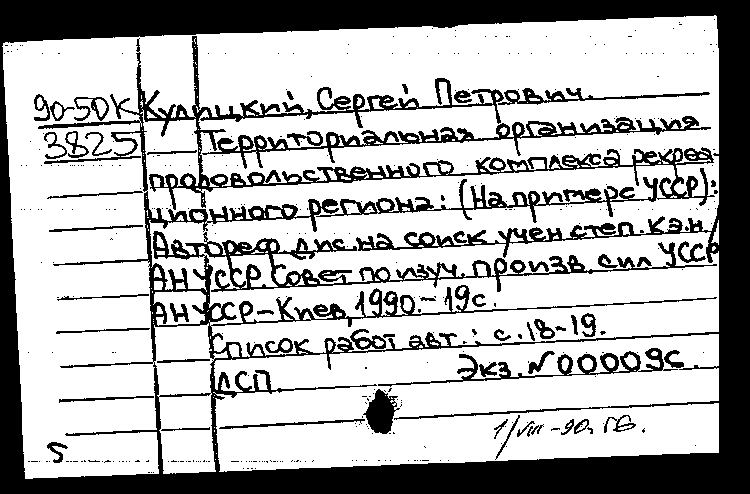 90-5DК Кулицкий, Сергей Петрович.
3825 Территориальная организация
продовольственного комплекса рекреа-
ционного региона: (На примере УССР):
Автореф. дис. на соиск. учен. степ. к.э.н/
АН УССР. Совет по изуч. произв. сил УССР
АН УССР.-Киев, 1990.-19с.
Список работ авт.: с.18-19.
ДСП. Экз. №00009с.
1/VIII-90г.
5